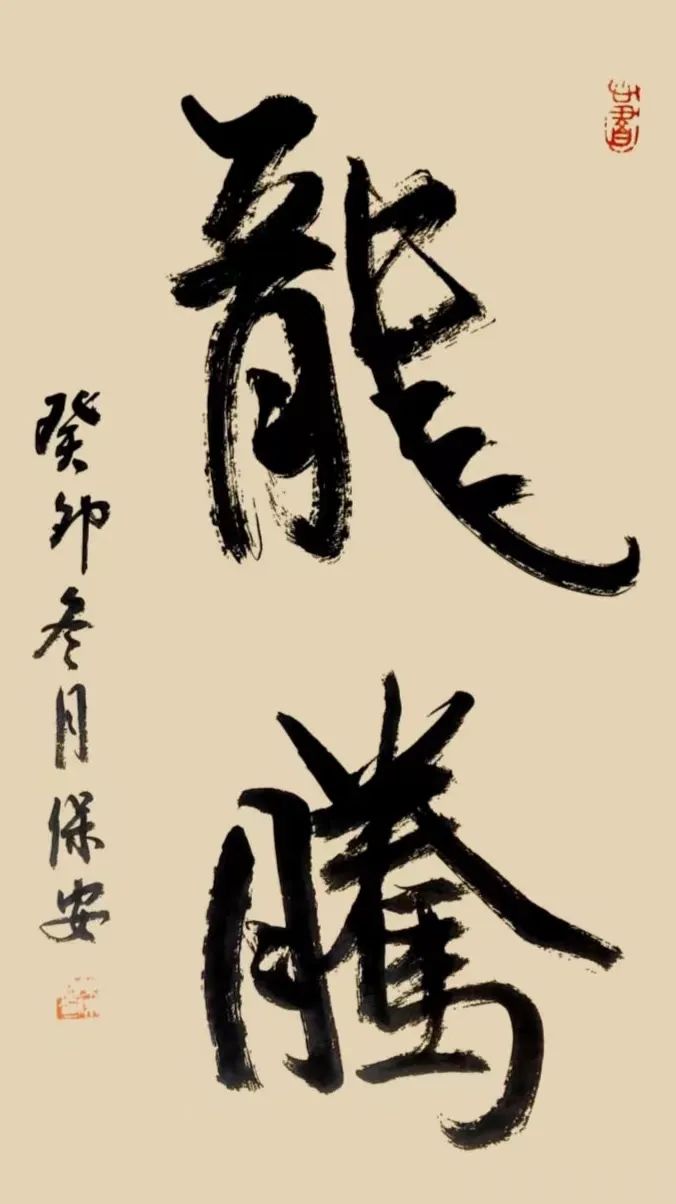 龍騰
癸卯冬月保安